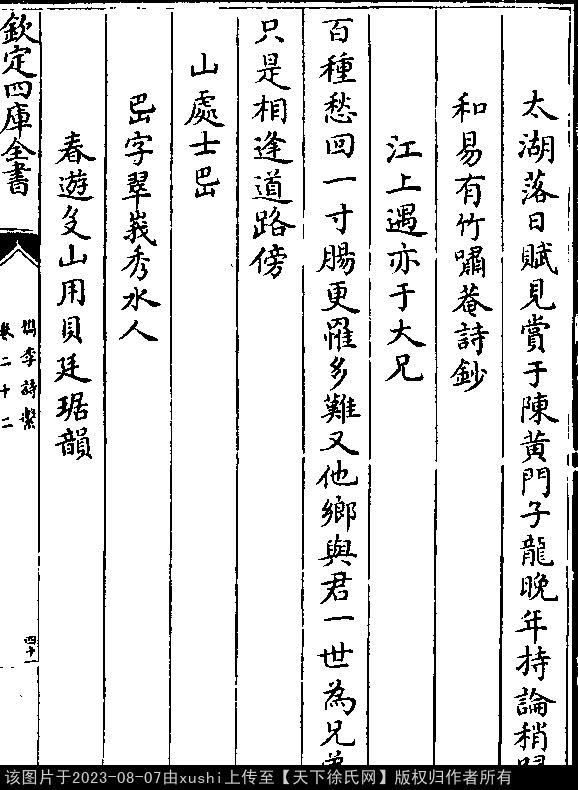 太湖落日賦見賞于陳黄門子龍晚年持論稍
和易有竹嘯菴詩鈔
江上遇亦于大兄
百種愁回一寸腸更罹多難又他鄉與君一世為兄
只是相逢道路傍
山處士㞾
㞾字翠峩秀水人
春遊㕛山用貝廷琚韻
欽定四庫全書
檇李詩繫
卷二十二
四十一
该图片于2023-08-07由xushi上传至【天下徐氏网】版权归作者所有